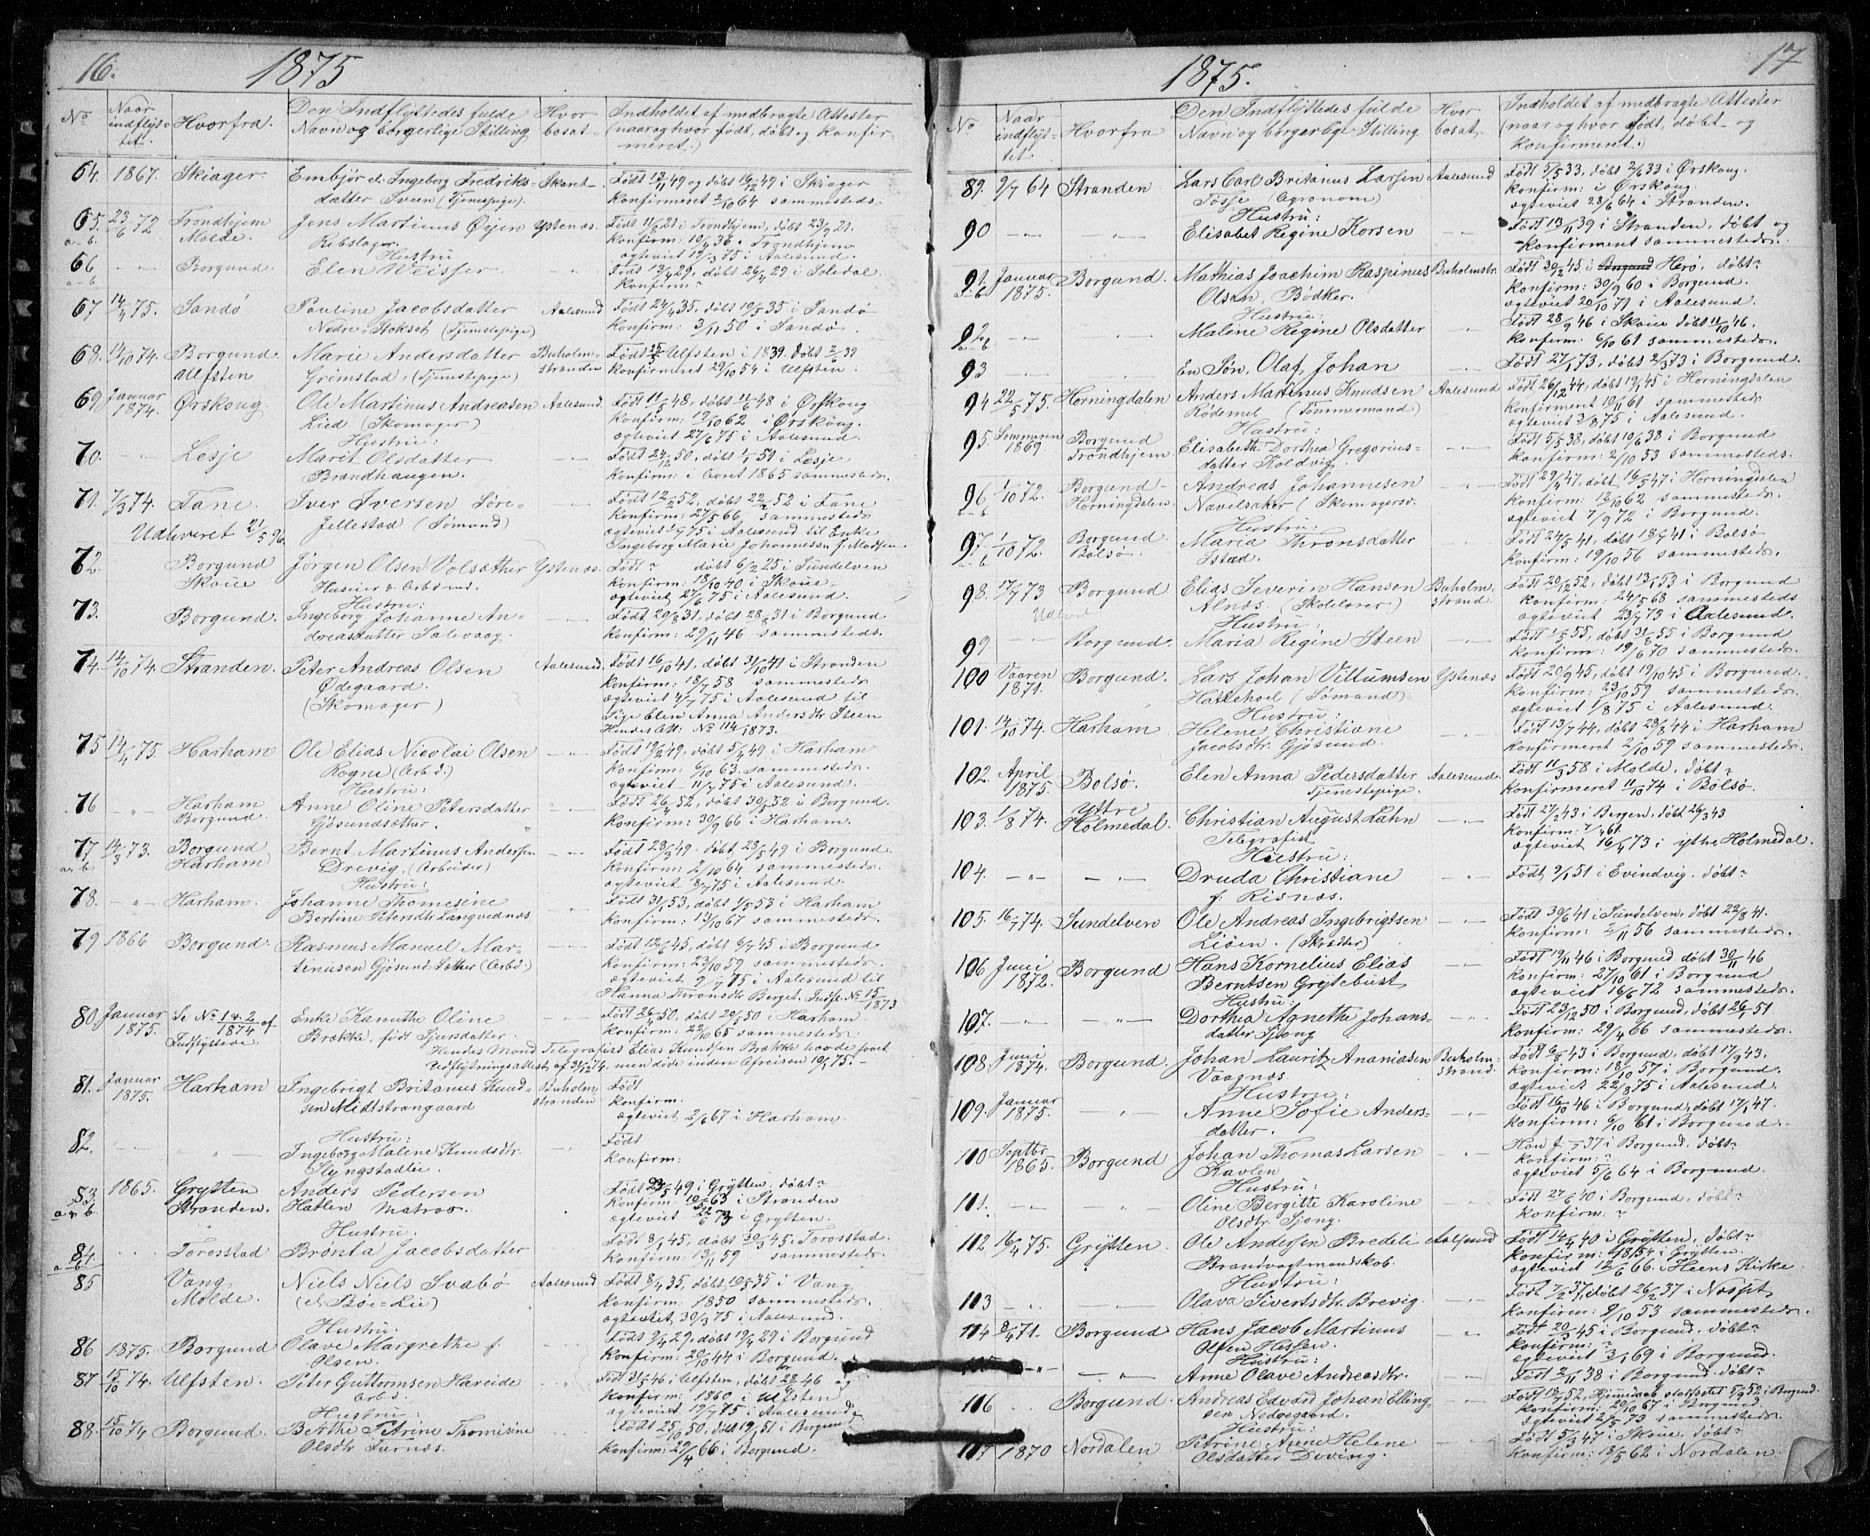 16.
1875
No
Naar indflyt-tet.
Hvorfra.
Den Indflyttedes fulde Navn og borgerlige Stilling
Hvor bosat.
Indholdet af medbragte Attester (naar og hvor født, døbt og konfirmeret.)
64. 1867. Skiager Embjør el. Ingeborg Fredriks- Skaret Født 12/11 49 og døbt 16/12 49 i Skiager
datter Sveen (Tjenestepige). Konfirmeret 2/10 64 sammesteds.
65. 23/6 72 Trondhjem Jens Martinus Øyen Ystenæs. Født 11/6 21 i Trondhjem, døbt 23/7 21.
a-b. Molde. Rebslager. Konfirm: 10/4 36 i Trondhjem
Hustru ægteviet 19/3 75 i Aalesund.
66 Borgund. Elen Weisser.
a-b
67 14/4 75. Sandø Pauline Jacobsdatter Aalesund Født 24/4 35, døbt 10/5 35 i Sandø
Nedre Stokset (Tjenestepige) Konfirm: 3/11 50 i Sandø.
68. 14/10 74. Borgund Marie Andersdatter Buholm-
Ulfsten Grimstad. (Tjenestepige) stranden Konfirmeret 29/10 54 i Ulfsten.
69 Januar 1874. Ørskoug Ole Martinus Andreasen Aalesund. Født 11/5 48, døbt 11/6 48 i Ørskoug
Lied (Skomager) Konfirm: 19/10 62 i Ørskoug.
Hustru: ægteviet 27/6 75 i Aalesund.
70. Lesje Marit Olsdatter
Brandhaugen. Konfirm: i Aaret 1865 sammesteds.
71. 7/3 74. Fane. Iver Iversen Søre- Født 12/2 52, døbt 22/2 52 i Fane
Udleveret 21/5 96. Jellestad (Sømand) Konfirm: 27/5 66 sammesteds
ægteviet 1/7 75 i Aalesund til Enke
Ingeborg Marie Johannessen f. Madsen.
72. Borgund Jørgen Olsen Volsæther Ystenæs. Født ? døbt 6/2 25 i Sundelven
Skoue Konfirm: 18/10 40 i Skoue
Hustru: ægteviet 27/6 75 i Aalesund.
73. Borgund. Ingeborg Johanne An- Født 20/8 31, døbt 28/8 31 i Borgund
dreasdatter Konfirm: 29/11 46 sammesteds.
74. 14/10 74 Stranden. Peter Andreas Olsen Aalesund. Født 16/10 41, døbt 31/10 41 i Stranden
Ødegaard. Konfirm: 18/7 58 sammesteds
(Skomager) ægteviet 4/7 75 i Aalesund til
Pige Elen Anna Andersdtr Steen
75 14/4 75. Harham Ole Elias Nicolai Olsen
Rogne (Arbd.) Konfirm: 6/10 63. sammesteds.
Hustru: ægteviet 11/7 75 i Aalesund.
76 Harham Anne Oline Petersdatter Født 26/4 52, døbt 30/5 52 i Borgund.
Borgund. Gjøsundsæther. Konfirm: 30/9 66 i Harham.
77 14/3 73. Borgund Bernt Martinus Andersen Født 28/3 49, døbt 23/5 49 i Borgund.
a-b Harham Drevig. (Arbeider) Konfirm: 2/10 64 sammesteds.
Hustru: ægteviet 8/7 75 i Aalesund.
78. Harham. Johanne Thomesine
Bertine Petersdtr Langvednæs Konfirm: 13/10 67 sammesteds.
79 1866 Borgund. Rasmus Manuel Mar- Født 12/6 45, døbt 6/7 45 i Borgund
tinusen Gjøsundsæther (Arbd.) Konfirm: 23/10 59 sammesteds.
ægteviet 9/7 75 i Aalesund til
80. Januar 1875. Se No 1 & 2/1874 af Indflyttede Enke Kanutte Oline
Brække, født Sjursdatter Konfirm: 22/10 65 sammesteds.
Hendes Mand Telegrafist Elias Knudsen Brække havde faaet
Udflytningsattest af 31/12 74, men døde inden Afreisen 10/1 75.
81. Januar 1875. Harham Ingebrigt Britanus Knud- Buholm- Født
sen Midtstrangaard stranden Konfirm:
ægteviet 2/6 67 i Harham.
82. Hustru: Født
Ingeborg Malene Knudsdtr. Konfirm:
Slyngstadlie.
83 1865. Grytten Anders Pedersen Født 23/5 49 i Grytten. døbt ?
a-b Stranden. Hatlen Matros Konfirm 10/5 63 i Stranden
Hustru: ægteviet 22/6 73 i Grytten.
84 Torosstad Brønta Jacobsdatter Født 8/1 45, døbt 30/3 45. Torosstad.
Konfirm. 13/11 59 sammesteds.
85 Vang Niels Niels Svabø Aalesund Født 8/4 35, døbt 19/5 35 i Vang
Molde. Konfirm: 1850 sammesteds.
Hustru: ægteviet, 30/3 75 i Aalesund.
86 1875. Borgund Olave Margrethe f. Født 9/4 29, døbt 19/4 29 i Borgund
Olsen. Konfirm: 20/10 44 i Borgund.
87 15/10 74. Ulfsten. Peter Guttormsen Hareide
Arbd. Konfirm: 1860 i Ulfsten
Hustru: ægteviet 19/7 75 i Aalesund.
88. 15/10 74 Borgund. Berthe Petrine Thomisine Født 25/10 50, døbt 19/1 51 i Borgund
Olsdtr Furnæs. Konfirm: 29/4 66 i Borgund.
17
1875.
No
Naar indflyt-tet.
Hvorfra
Den Indflyttedes fulde Navn og borgerlige Stilling
Hvor bosat.
Indholdet af medbragte Attester (naar og hvor født, døbt og konfirmeret.)
89. 9/7 64 Stranden Lars Carl Britanus Larsen Aalesund Født 5/5 33, døbt 2/6 33 i Ørskoug.
Agronom) Konfirm: i Ørskoug.
Hustru: ægteviet 28/6 64 i Stranden.
90 Elisabet Regine Korsen Født 13/11 39 i Stranden, døbt og
Konfirmert sammesteds.
91 Januar 1875. Borgund. Mathias Joachim Raspinus Buholmstr. Født 30/3 45 i Herø, døbt ?
a-b Olsen, Bødker. Konfirm: 30/9 60 i Borgund.
Hustru: ægteviet 20/10 71 i Aalesund.
92. Malene Regine Olsdatter Født 28/9 46 i Skoue døbt 11/10 46.
a-b Konfirm: 6/10 61 sammesteds.
93 En Søn, Olaf Johan Født 27/1 73, døbt 2/3 73 i Borgund.
94 22/5 75. Horningdalen. Anders Martinus Knudsen Aalesund Født 26/12 44, døbt 19/1 45 i Horningdalen
Rødemel (Tømmermand) Konfirmeret 10/11 61 sammesteds
Hustru: ægteviet 2/8 75 i Aalesund.
95. Sommeren 1869. Borgund Elisabeth Dorthea Gregorius- Født 5/5 38, døbt 10/6 38 i Borgund
Trondhjem datter Koldvig. Konfirm: 2/10 53 sammesteds.
96 1/10 72. Borgund Andreas Johannesen Født 29/4 47, døbt 16/5 47 i Horningdalen
a-b Horningdalen Navelsaker (Skomagersv. Konfirm: 12/10 62 sammesteds
Hustru: ægteviet 7/9 72 i Borgund.
97. 1/10 72. Borgund Maria Thronsdatter Født 24/5 41, døbt 18/7 41 i Bolsø.
a-b Bolsø. Istad. Konfirm: 19/10 56 sammesteds.
98. 17/7 73 Borgund Elias Severin Hansen Buholm- Født 20/12 52, døbt 13/1 53 i Borgund
Alnæs. (Skolelærer.) strand. Konfirm: 24/5 68 sammesteds
Hustru: ægteviet 23/7 73 i Aalesund.
99 Borgund. Maria Regine Steen
Konfirm: 19/6 70 sammesteds.
100 Vaaren 1871. Borgund. Lars Johan Villumsen Ystenæs Født 20/9 45, døbt 19/10 45 i Borgund.
Hatlehoel (Sømand). Konfirm: 23/10 59 sammesteds.
Hustru: ægteviet 1/8 75 i Aalesund.
101. 14/10 74. Harham. Helene Christiane Født 13/7 44, døbt 28/8 44 i Harham
Jacobsdtr. Gjøsund. Konfirmeret 2/10 59 sammesteds.
102. April 1875. Bolsø. Elen Anna Pedersdatter Aalesund. Født 11/3 58 i Molde, døbt ?
Tjenestepige. Konfirmeret 11/10 74 i Bolsø.
103. 1/8 74. Yttre Holmedal. Christian August Lahn Født 27/2 43 i Bergen, døbt 26/3 43
Telegrafist Konfirm: 7/4 61.
Hustru: ægteviet 16/4 73 i ytre Holmedal.
104. Druda Christiane Født 9/1 51 i Evindvig, døbt ?
f. Risnæs.
105 16/7 74. Sundelven Ole Andreas Ingebrigtsen Født 30/6 41 i Sundelven, døbt 22/8 41.
Liøen. (Skræder) Konfirm: 2/11 56 sammesteds.
106 Juni 1872. Borgund Hans Kornelius Elias Født 19/11 46 i Borgund døbt 30/11 46
Berntsen Grytebust Konfirm: 27/10 61 i Borgund
Hustru: ægteviet 16/6 72 sammesteds.
107. Dorthea Agnethe Johans- Født 23/12 50 i Borgund, døbt 26/1 51
datter Sjong Konfirm: 29/4 66 i Borgund.
108 Juni 1874. Borgund. Johan Lauritz Ananiasen Buholm- Født 6/8 43 i Borgund, døbt 17/9 43.
Vaagnæs. strand. Konfirm: 18/10 57 i Borgund.
Hustru: ægteviet 22/8 75 i Aalesund.
109. Januar 1875. Anne Sofie Anders- Født 16/10 46 i Borgund, døbt 17/1 47.
datter. Konfirm: 6/10 61 i Borgund.
110 Septbr 1865. Borgund Johan Thomas Larsen Han f. 37 i Borgund. døbt ?
Kavlen Konfirm: ?
Hustru: ægteviet 5/6 64 i Borgund.
111. Oline Bergitte Karoline Født 27/6 40 i Borgund, døbt ?
Olsdtr. Sjong. Konfirm: ?
112 16/4 75. Grytten. Ole Andersen Bredeli Aalesund Født 14/5 40 i Grytten, døbt ?
Brandvagtmandskab. Konfirm: 1854 i Grytten.
Hustru: ægteviet 12/6 66. i Heens Kirke.
113 Olava Sivertsdtr. Brevig Født 7/2 37, døbt 26/2 37 i Næsset.
Konfirm: 9/10 53 sammesteds.
114 2/4 71. Borgund Hans Jacob Martinus Født 20/3 45 i Borgund, døbt ?
Olsen Hessen. Konfirm: ?
Hustru: ægteviet 3/1 69 i Borgund.
Anne Olave Andreasdtr. Født 2/11 38 i Borgund, døbt ?
116 Borgund. Andreas Edvard Johan Elling-
sen Nedregaard. Konfirm: 20/10 67 i Borgund
Hustru: ægteviet 2/5 73 sammesteds
117 1870 Nordalen Petrine Anne Helene Født 5/3 47 i Skoue, døbt ?
Olsdatter Døving. Konfirm: 13/5 62 i Nordalen.